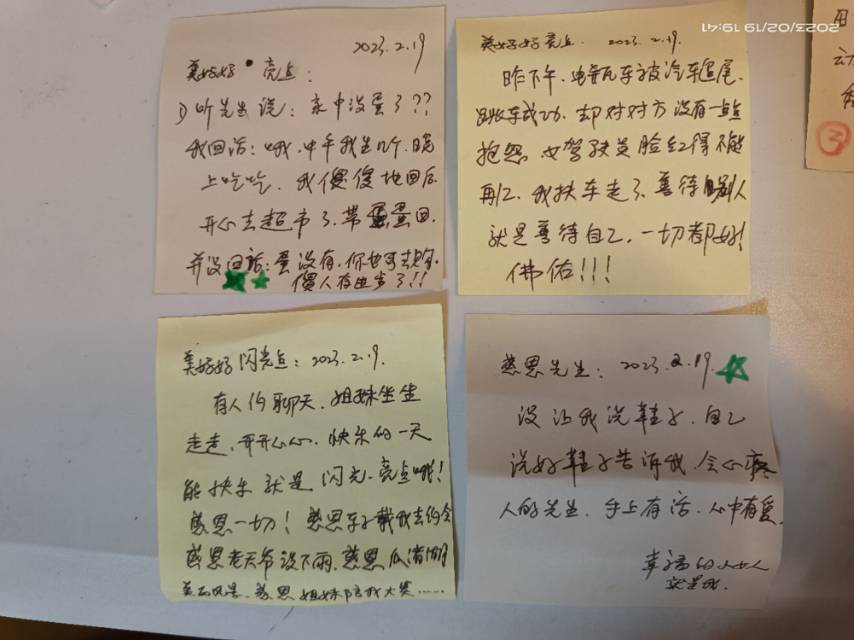 美好好 亮点:
2023.2.19
1)听先生说:家中没蛋了??
我回话:哦,中午我生几个,晚
上吃吃,我傻傻地回后
开心去超市了,带蛋蛋回.
并没回话:蛋没有,你也可去购.
傻人存生步了!!!
美好好亮点. 2023.2.19.
昨下午,电瓶车被汽车追尾.
却对对方没有一点
抱怨,女驾驶员脸红得不能
再红,我扶车走了,善待别人
就是善待自己,一切都好!
佛佑!!!
美好好闪亮点:2023.2.19.
有人约聊天,姐妹坐坐
走走,开开心心,快乐的一天
能快乐就是闪光亮点哦!
感恩一切!感恩车子载我去约会
感恩老天爷没下雨,感恩瓜渚湖
美丽风景,感恩姐妹陪我大笑......
感恩先生:2023.2.19.
没让我洗鞋子,自己
洗好鞋子告诉我,会心疼
人的先生,手上有活,心中有爱.
幸福的小女人
就是我.
2023/02/19 19:41
用
动
3